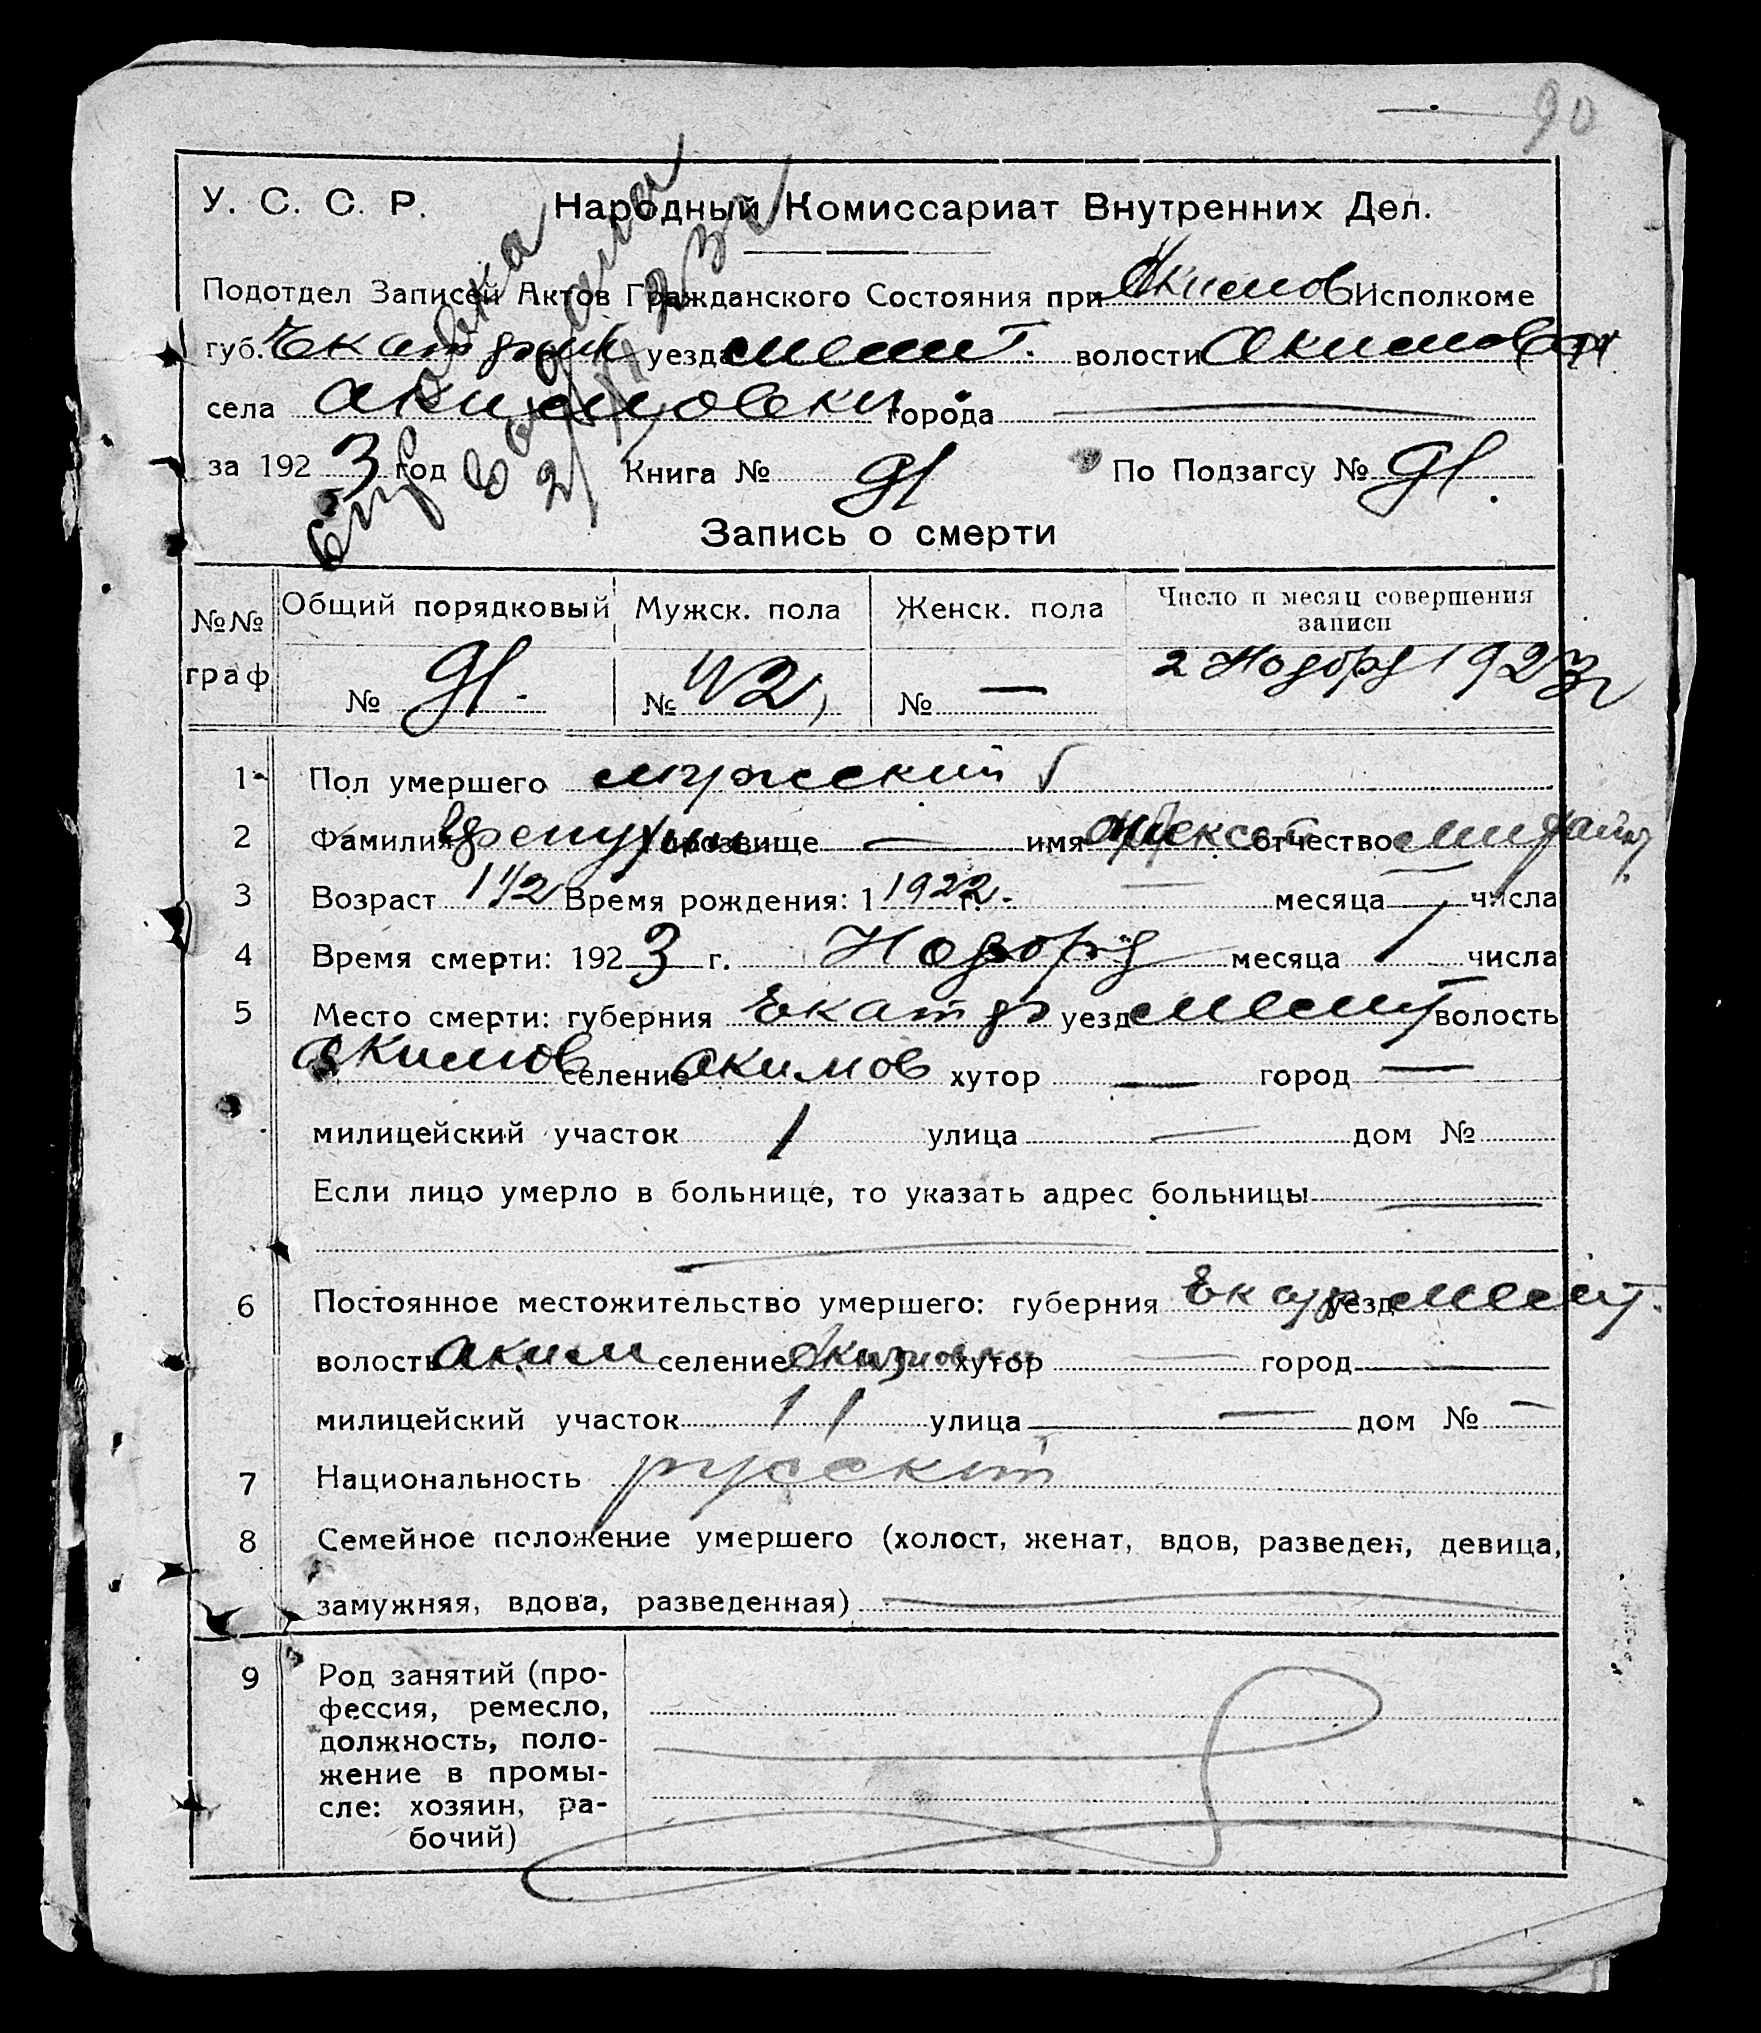 90
У. С. С. Р. Народный Комиссариат Внутренних Дел.
Подотдел Записей Актов Гражданского Состояния при Акимов Исполкоме
губ. уезда Мелит. волости Акимовск
села Акимовки города —
за 1923 год Книга № 91 По Подзагсу № 91.
справка выдана
2/XI 23 г
Запись о смерти
№№ граф Общий порядковый № 91. Мужск. пола № 42 Женск. пола № — Число и месяц совершения записи 2 Ноября 1923 г
1 Пол умершего мужской
2 Фамилия прозвище — имя Алексей отчество
3 Возраст 1 1/2 Время рождения: 1 1922 г. — месяца — числа
4 Время смерти: 1923 г. Ноября месяца 1 числа
5 Место смерти: губерния Екатер уезд Мелит волость
Акимов селение Акимов хутор — город —
милицейский участок 1 улица — дом №
Если лицо умерло в больнице, то указать адрес больницы —
6 Постоянное местожительство умершего: губерния Екатр уезд Мелит.
волость Аким селение Акимовки хутор — город —
милицейский участок 1 1 улица — дом № —
7 Национальность русский
8 Семейное положение умершего (холост, женат, вдов, разведен, девица,
замужняя, вдова, разведенная) —
9 Род занятий (про-
фессия, ремесло,
должность, поло-
жение в промы-
сле: хозяин, ра-
бочий)